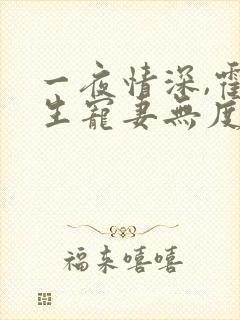 一夜情深,霍
生寵妻無度
福来嘻嘻